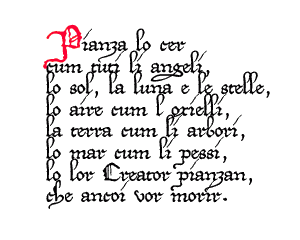 Pianza lo cer
cum tuti li angeli,
lo sol, la luna e le stelle,
lo aire cum l oxielli,
la terra cum li arbori,
lo mar cum li pessi,
lo lor Creator pianzan,
che ancoi vor morir.